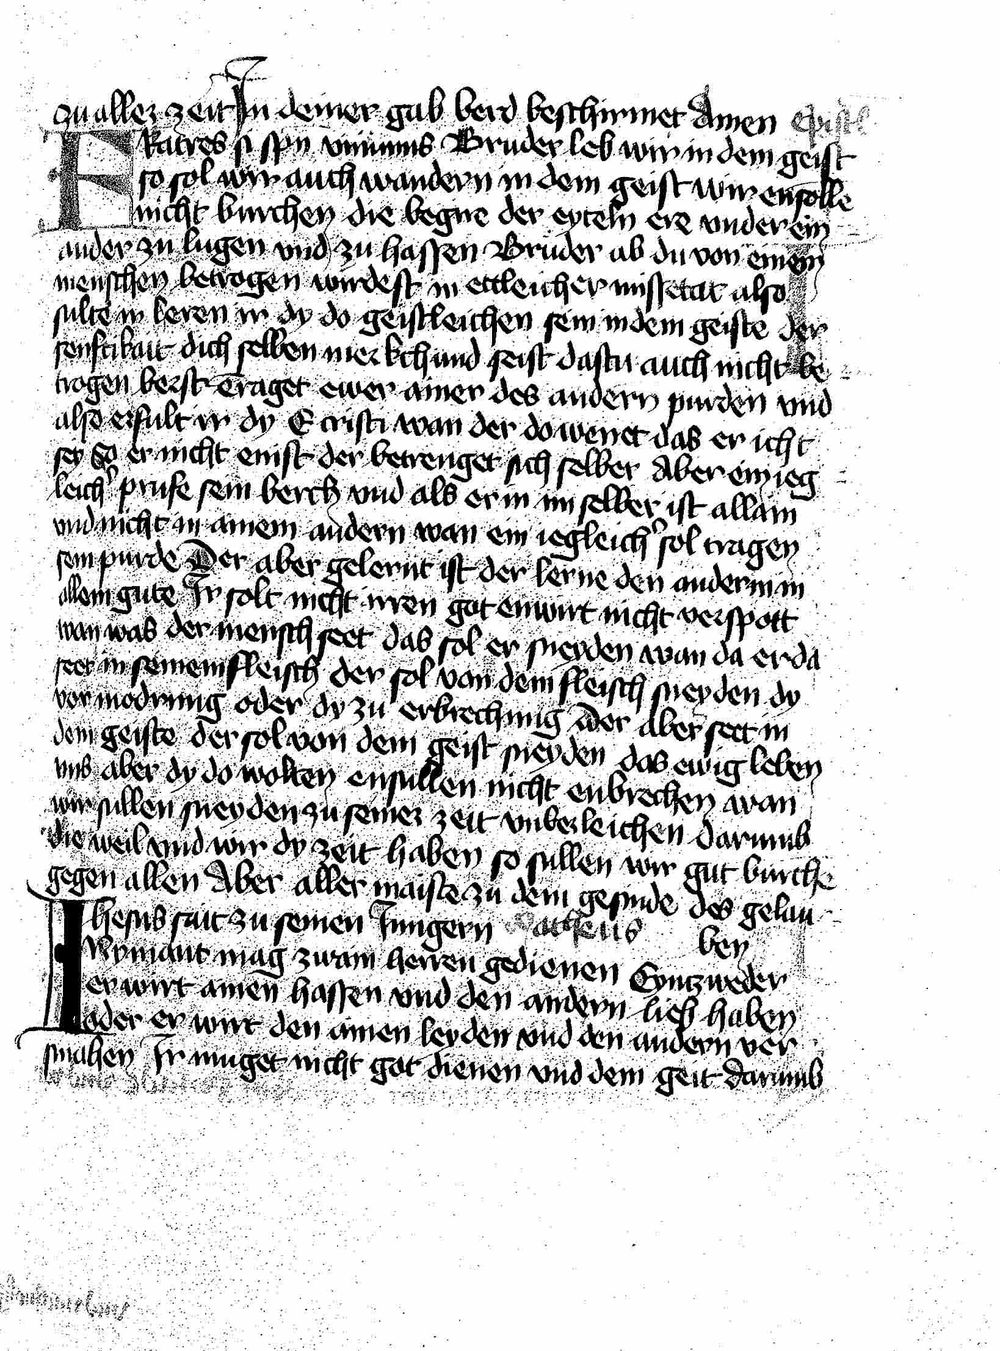 zu aller zeit In deiner gab berd beschirmet Amen Epistl
FRatres si spu vivimus Bruder leb wir in dem geist
so sol wir auch wandern in dem geist wir ensolle
nicht burchen die begire der eyteln ere vnder ein
ander zu lugen vnd zu hassen Bruder ab du von einem
menschen betrogen wirdest in ettleicher missetat also
sulte in keren ir dy do geistleichen sein in dem geiste der
senftikait dich selben merkch und seist dastu auch nicht be
trogen berst Traget ewer ainer des andern purden vnd
also erfult ir dy E cristi wan der do wenet das er icht
sey So er nicht enist der betreuget sich selber Aber ein ieg
leich' prufe sein berch vnd als er in im selber ist allain
vnd nicht in ainem andern wan ein iegleich' sol tragen
sein purde Der aber gelernt ist der lerne den anderm in
allem gute Ir solt nicht irren got enwirt nicht verspott
wan was der mensch seet das sol er sneyden wan da er da
seet in seinem fleisch der sol von dem fleisch sneyden dy
vermodrung oder dy zu erbrechung Der aber seet in
dem geiste der sol von dem geist sneyden das ewig leben
vns aber dy do wolten ensullen nicht enbrechen wan
wir sullen sneyden zu seiner zeit vnberleichen darumb
die weil vnd wir dy zeit haben so sullen wir gut burche
gegen allen Aber aller maiste zu dem gesinde des gelau
Ihesus sait zu seinen Iungern Matheus ben
Nymant mag zwain herren gedienen Eyntzweder
er wirt ainen hassen vnd den andern lieb haben
ader er wirt den ainen leyden vnd den andern ver
smahen Ir muget nicht got dienen vnd dem geit darumb